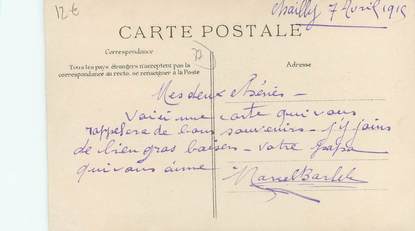 12 €
Mailly 7 Avril 1915
CARTE POSTALE
Correspondance
Tous les pays étrangers n'acceptent pas la
correspondance au recto, se renseigner à la Poste
Adresse
Mes deux chéries -
Voici une carte qui vous
rappelera de bons souvenirs - J'y joins
de bien gros baisers - votre papa
qui vous aime
Marcel